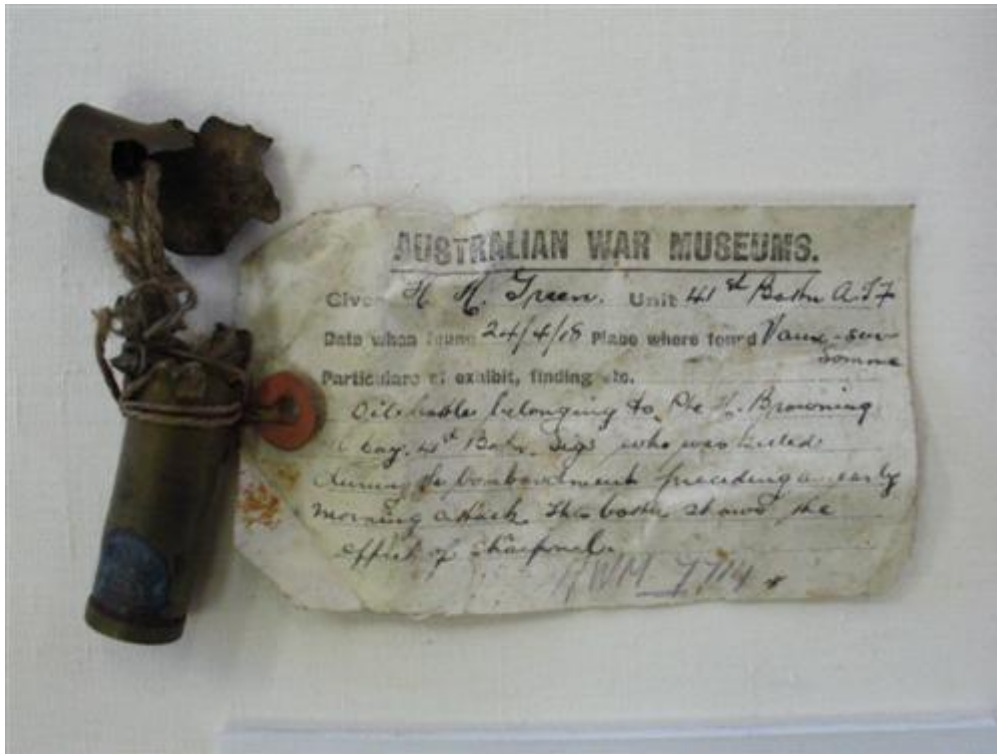 AUSTRALIAN WAR MUSEUMS.
Giver H. H. Green. Unit 41st Battn A.I.F
Date when found 24/4/18 Place where found Vaux-sur
Somme
Particulars of exhibit, finding etc.
Oil bottle belonging to Pte H. Browning
Coy. 41st Battn. Sigs who was killed
during the bombardment preceding an early
morning attack. This bottle shows the
effect of shrapnel.
AWM 7714